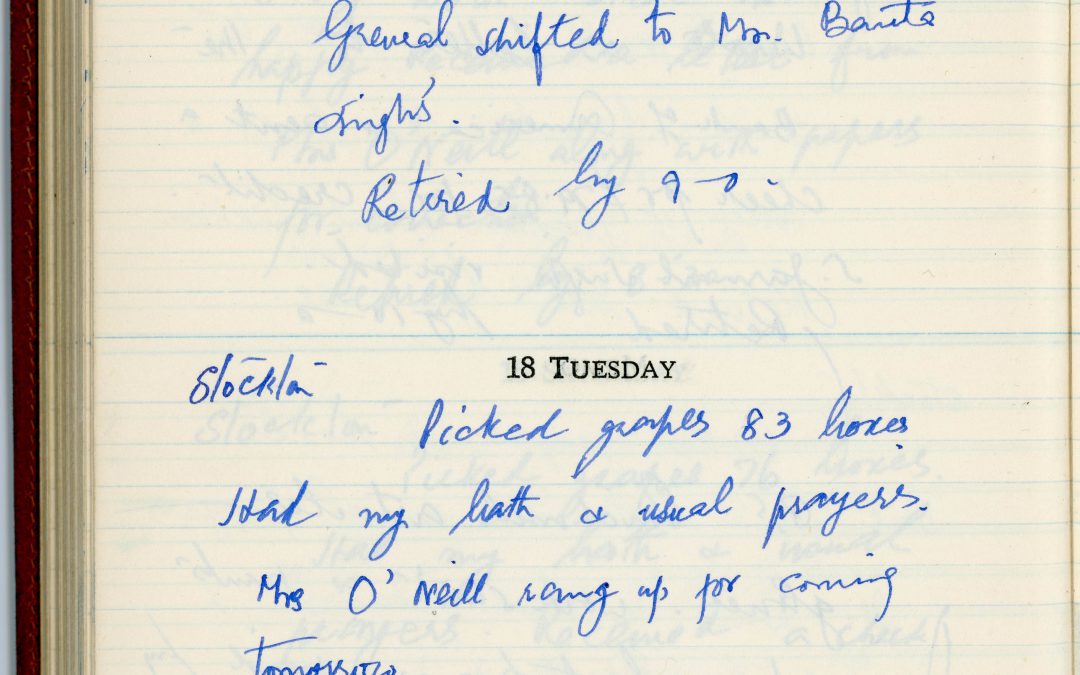 General shifted to Mrs. Banta
Singhs'.
Retired by 9-0.
18 TUESDAY
Stockton
Picked grapes 83 boxes
Had my bath & usual prayers.
Mrs O'Neill rang up for coming
tomorrow